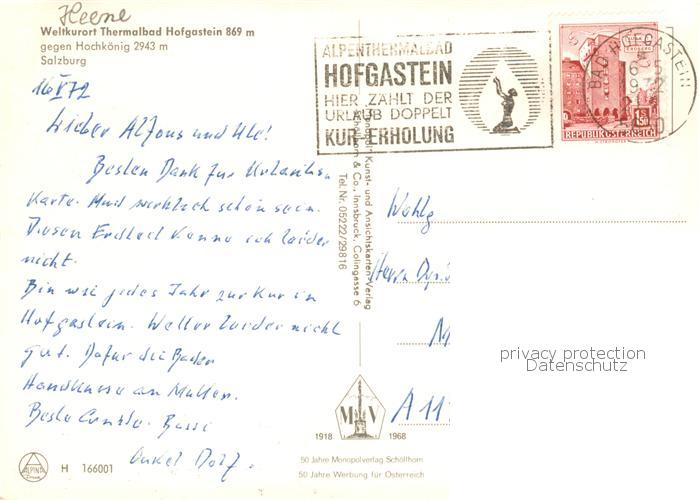 Heene
Weltkurort Thermalbad Hofgastein 869 m
gegen Hochkönig 2943 m
Salzburg
16 V 72
Lieber Alfons und Ute!
Besten Dank für Urlaubs
Karte. Muß wirklich schön sein.
Diesen Erdteil kenne ich leider
nicht.
Bin wie jedes Jahr zur Kur in
Hofgastein. Wetter leider nicht
gut. Dafür die Bäder
an
Beste Bussi
Onkel
ALPENTHERMALBAD
HOFGASTEIN
HIER ZÄHLT DER
URLAUB DOPPELT
KUR-ERHOLUNG
BAD HOFGASTEIN
REPUBLIK ÖSTERREICH
1.50
"Monopol" Kunst- und Ansichtskarten-Verlag
Schöllhorn & Co., Innsbruck, Colingasse 6
Tel. Nr. 05222/29816
Wohlg
Herrn
A 11
privacy protection
Datenschutz
M V
1918 1968
50 Jahre Monopolverlag Schöllhorn
50 Jahre Werbung für Österreich
ALPINA
H 166001